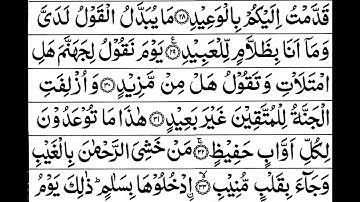 قَدَّمْتُ اِلَيْكُمْ بِالْوَعِيْدِ ﴿۲۸﴾ مَا يُبَدَّلُ الْقَوْلُ لَدَىَّ
وَمَاۤ اَنَا بِظَلَّامٍ لِّلْعَبِيْدِ ﴿۲۹﴾ يَوْمَ نَقُوْلُ لِجَهَنَّمَ هَلِ
امْتَلَاْتِ وَتَقُوْلُ هَلْ مِنْ مَّزِيْدٍ ﴿۳۰﴾ وَاُزْلِفَتِ
الْجَنَّةُ لِلْمُتَّقِيْنَ غَيْرَ بَعِيْدٍ ﴿۳۱﴾ هٰذَا مَا تُوْعَدُوْنَ
لِكُلِّ اَوَّابٍ حَفِيْظٍ ﴿۳۲﴾ مَنْ خَشِىَ الرَّحْمٰنَ بِالْغَيْبِ
وَجَآءَ بِقَلْبٍ مُّنِيْبٍ ﴿۳۳﴾ اِدْخُلُوْهَا بِسَلٰمٍ ؕ ذٰلِكَ يَوْمُ